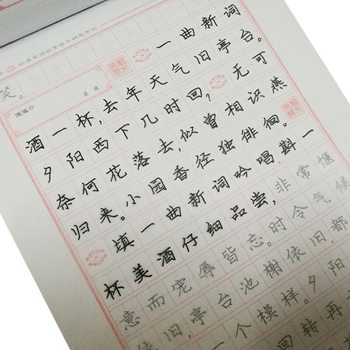 一曲新词
酒一杯,去年天气旧亭台。
夕阳西下几时回,无可
奈何花落去,似曾相识燕
归来。小园香径独徘徊。
填一曲新词吟唱斟一
杯美酒仔细品尝,非常惬
意而宠辱皆忘。时令气候
依旧,亭台池榭依旧,都
一个模样。夕阳
回转再